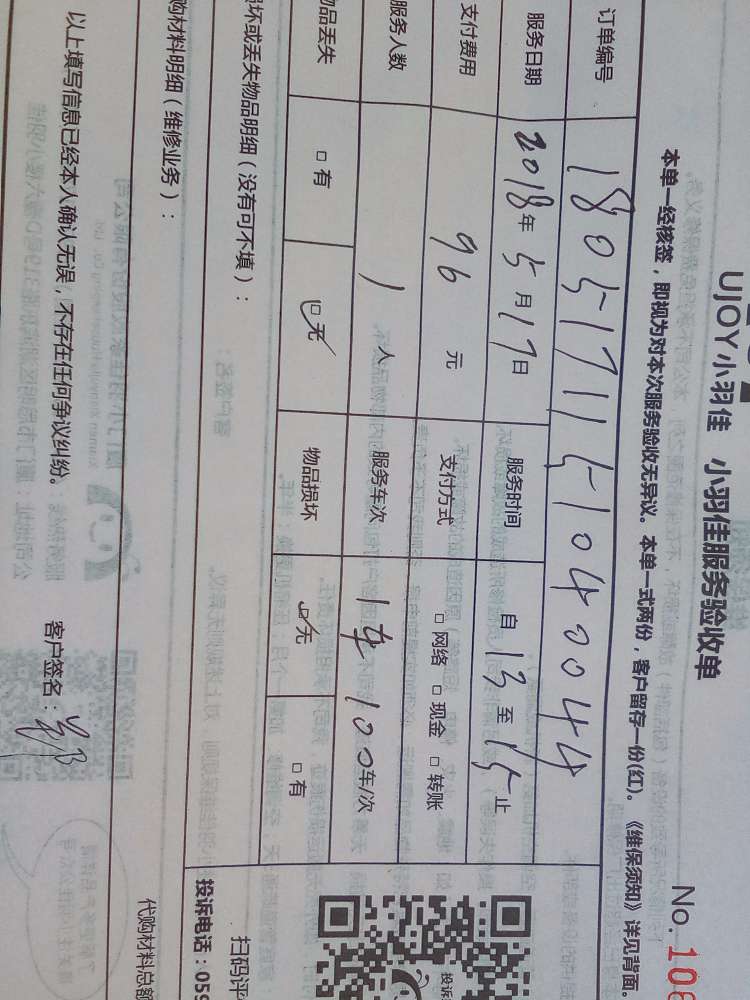 UJOY小羽佳 小羽佳服务验收单
No. 106
本单一经核签，即视为对本次服务验收无异议。本单一式两份，客户留存一份(红)。《维保须知》详见背面
订单编号 1805171151040044
服务日期 2018年5月17日 服务时间 自13至15止
支付费用 96元 支付方式 □网络 □现金 □转账
服务人数 1人 服务车次 1车100车/次
物品丢失 □有 ☑无 物品损坏 ☑无 □有
坏或丢失物品明细（没有可不填）：
投诉
扫码评
投诉电话：059
购材料明细（维修业务）：
代购材料总额
以上填写信息已经本人确认无误，不存在任何争议纠纷。 客户签名：